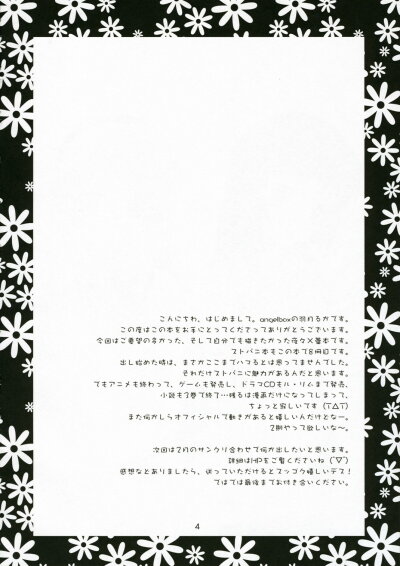 こんにちわ、はじめまして。angelboxの羽月るかです。
この度はこの本をお手にとってくださってありがとうございます。
今回はご要望の多かった、そして自分でも描きたかった夜々×蕾本です。
ストパニ本もこの本で8冊目です。
出し始めた時は、まさかここまでハマるとは思ってませんでした。
それだけストパニに魅力があるんだと思います。
でもアニメも終わって、ゲームも発売し、ドラマCDもル・リムまで発売、
小説も3巻で終了…残るは漫画だけになってしまって、
ちょっと寂しいです (T△T)
また何かしらオフィシャルで動きがあると嬉しいんだけどな～。
2期やって欲しいな～。
次回は2月のサンクリ合わせで何か出したいと思います。
詳細はHPをご覧くださいね (´▽`)
感想などありましたら、送っていただけるとスッゴク嬉しいデス！
ではでは最後までお付き合いください。
4